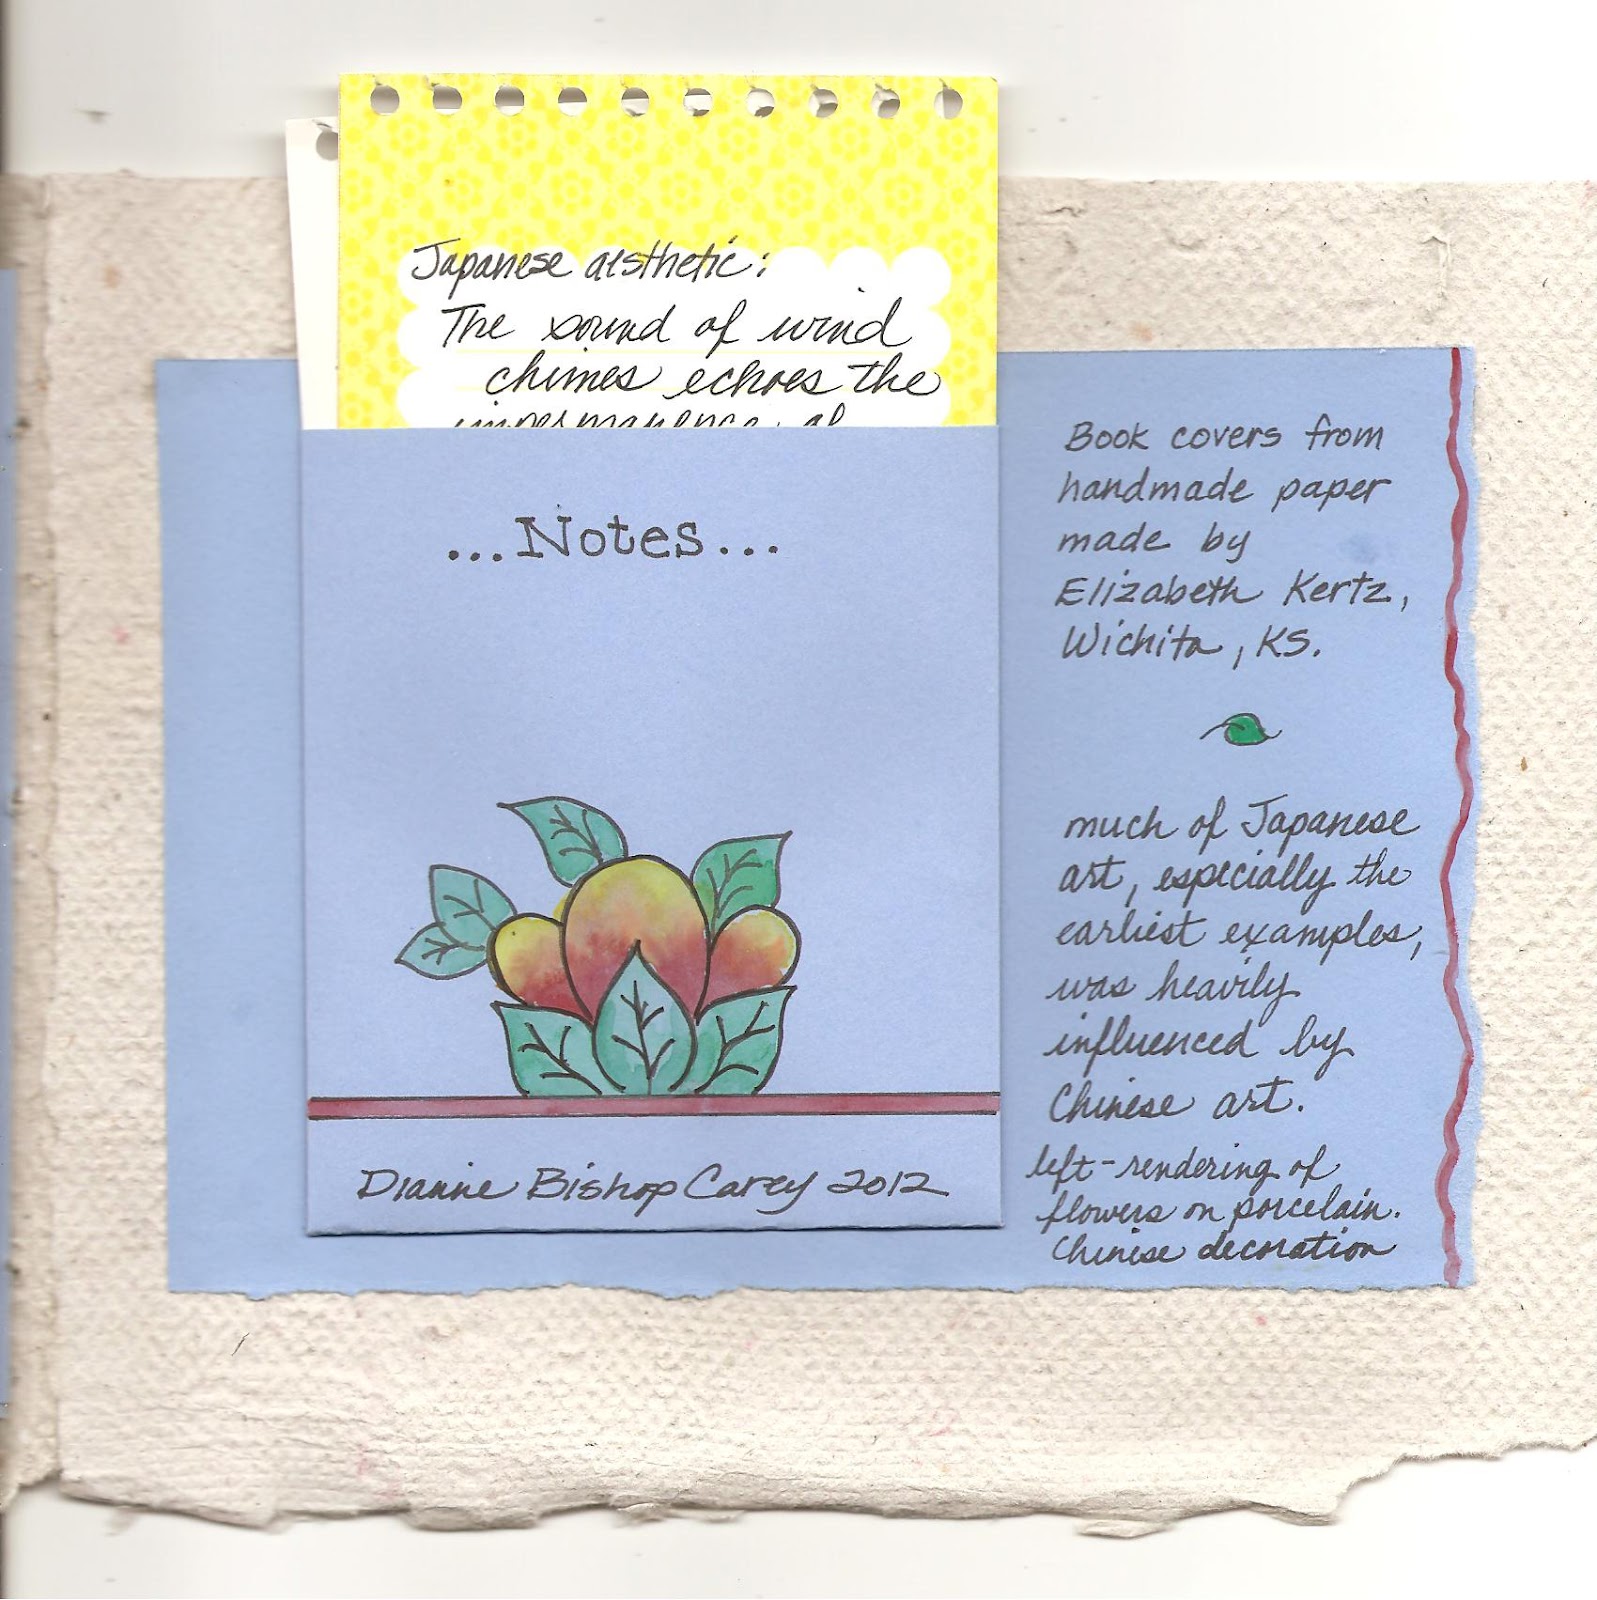 Japanese aesthetic:
The sound of wind
chimes echoes the
impermanence of
...Notes...
Dianne Bishop Carey 2012
Book covers from
handmade paper
made by
Elizabeth Kertz,
Wichita, KS.
much of Japanese
art, especially the
earliest examples,
was heavily
influenced by
Chinese art.
left-rendering of
flowers on porcelain.
Chinese decoration